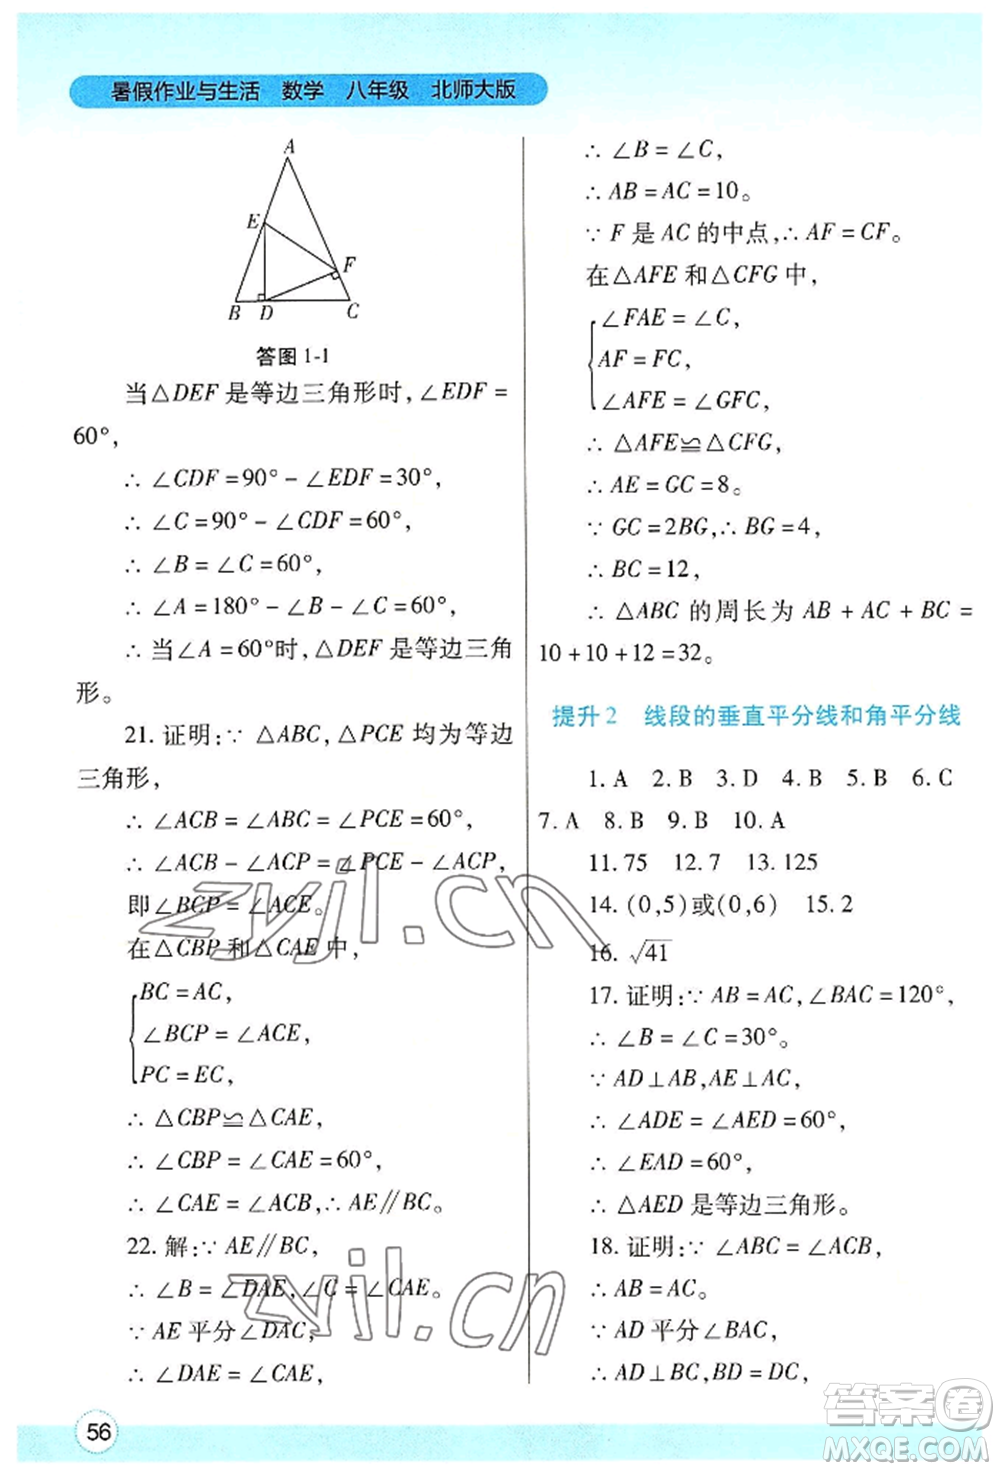 暑假作业与生活 数学 八年级 北师大版
A
E
F
B D C
答图 1-1
当△DEF 是等边三角形时,∠EDF=
60°,
∴ ∠CDF=90°-∠EDF=30°,
∴ ∠C=90°-∠CDF=60°,
∴ ∠B=∠C=60°,
∴ ∠A=180°-∠B-∠C=60°,
∴ 当∠A=60°时,△DEF 是等边三角
形。
21. 证明:∵ △ABC,△PCE 均为等边
三角形,
∴ ∠ACB=∠ABC=∠PCE=60°,
∴ ∠ACB-∠ACP=∠PCE-∠ACP,
即∠BCP=∠ACE。
在△CBP 和△CAE 中,
BC=AC,
∠BCP=∠ACE,
PC=EC,
∴ △CBP≌△CAE,
∴ ∠CBP=∠CAE=60°,
∴ ∠CAE=∠ACB,∴ AE∥BC。
22. 解:∵ AE∥BC,
∴ ∠B=∠DAE,∠C=∠CAE。
∵ AE 平分∠DAC,
∴ ∠DAE=∠CAE,
∴ ∠B=∠C,
∴ AB=AC=10。
∵ F 是 AC 的中点,∴ AF=CF。
在△AFE 和△CFG 中,
∠FAE=∠C,
AF=FC,
∠AFE=∠GFC,
∴ △AFE≌△CFG,
∴ AE=GC=8。
∵ GC=2BG,∴ BG=4,
∴ BC=12,
∴ △ABC 的周长为 AB+AC+BC=
10+10+12=32。
提升2 线段的垂直平分线和角平分线
1. A 2. B 3. D 4. B 5. B 6. C
7. A 8. B 9. B 10. A
11. 75 12. 7 13. 125
14. (0,5)或(0,6) 15. 2
16. √41
17. 证明:∵ AB=AC,∠BAC=120°,
∴ ∠B=∠C=30°。
∵ AD⊥AB,AE⊥AC,
∴ ∠ADE=∠AED=60°,
∴ ∠EAD=60°,
∴ △AED 是等边三角形。
18. 证明:∵ ∠ABC=∠ACB,
∴ AB=AC。
∵ AD 平分∠BAC,
∴ AD⊥BC,BD=DC,
56
zyjl.cn
zyjl.cn
答案圈
MXQE.COM